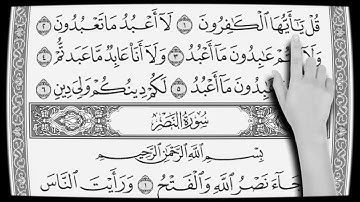 قُلْ يَٰٓأَيُّهَا ٱلْكَٰفِرُونَ ١ لَآ أَعْبُدُ مَا تَعْبُدُونَ ٢
وَلَآ عَٰبِدُونَ مَآ أَعْبُدُ ٣ وَلَآ أَنَا۠ عَابِدٌ مَّا عَبَدتُّمْ ٤
عَٰبِدُونَ مَآ أَعْبُدُ ٥ لَكُمْ دِينُكُمْ وَلِىَ دِينِ ٦
سُورَةُ النَّصْرِ
بِسْمِ ٱللَّهِ ٱلرَّحْمَٰنِ ٱلرَّحِيمِ
جَآءَ نَصْرُ ٱللَّهِ وَٱلْفَتْحُ ١ وَرَأَيْتَ ٱلنَّاسَ